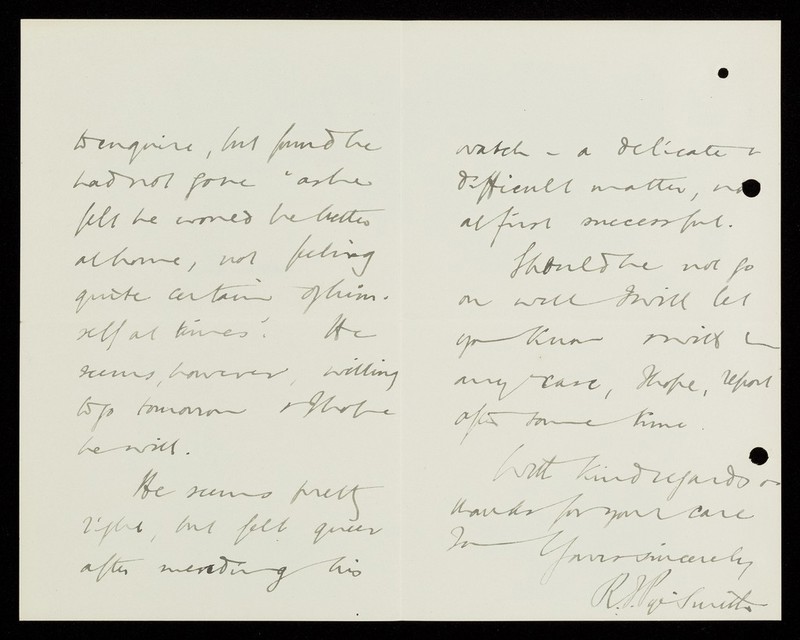 to enquire, but found he
had not gone "as he
felt he would be better
at home, not feeling
quite certain of him-
self at times". He
seems, however, willing
to go tomorrow & I hope
he will.
He seems pretty
right, but felt queer
after mending his
watch - a delicate &
difficult matter, not
at first successful.
Should he not go
on well I will let
you know & will in
any case, I hope, report
after some time.
With kind regards &
thanks for your care
Yours sincerely
R. J. Pye-Smith